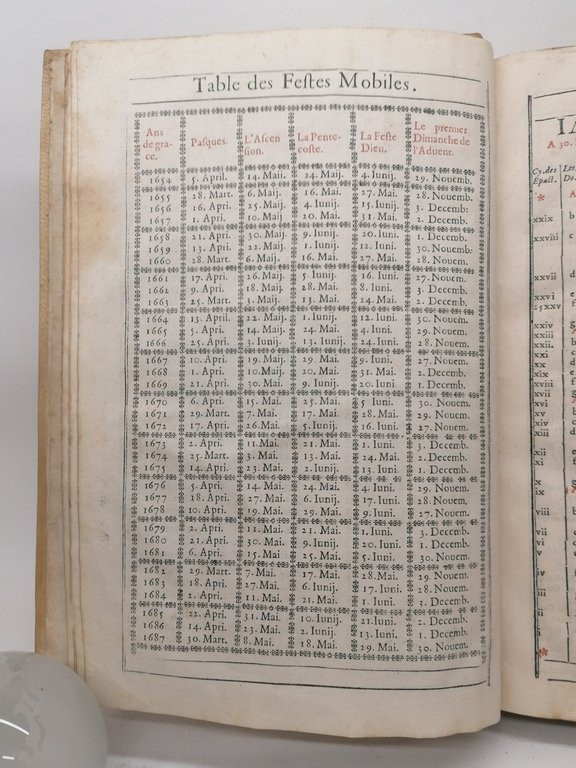 Table des Festes Mobiles.
Ans de grace. Pasques. L'Ascension. La Pentecoste. La Feste Dieu. Le premier Dimanche de l'Aduent.
1654 5. April. 14. Mai. 24. Maij. 4. Iunij. 29. Nouemb.
1655 28. Mart. 6. Mai. 16. Mai. 27. Mai. 28. Nouemb.
1656 16. Apri. 25. Mai. 4. Iunij. 15. Iuni. 3. Decemb.
1657 1. Apri. 10. Maij 20. Mai. 31. Mai. 2. Decemb.
1658 21. Apri. 30. Maij. 9. Iunij. 20. Iuni. 1. Decemb.
1659 13. Apri. 22. Maij. 1. Iunij. 12. Iuni. 30. Nouemb.
1660 28. Mart. 6. Maij. 16. Mai. 27. Mai. 28. Nouem.
1661 17. Apri. 26. Maij. 5. Iunij. 16. Iuni. 27. Nouem.
1662 9. Apri. 18. Maij. 28. Mai. 8. Iuni. 3. Decemb.
1663 25. Mart. 3. Maij. 13. Mai. 24. Mai. 2. Decemb.
1664 13. April. 22. Maij. 1. Iunij. 12. Iuni. 30. Nouem.
1665 5. Apri. 14. Maij. 24. Mai. 4. Iuni. 29. Nouem.
1666 25. Apri. 3. Iunij. 13. Iunij. 24. Iuni. 28. Nouem.
1667 10. Apri. 19. Maij. 29. Mai. 9. Iuni. 27. Nouem.
1668 1. Apri. 10. Maij. 20. Mai. 31. Mai. 2. Decemb.
1669 21. Apri. 30. Maij. 9. Iunij. 20. Iuni. 1. Decemb.
1670 6. Apri. 15. Mai. 25. Mai. 5. Iuni. 30. Nouem.
1671 29. Mart. 7. Mai. 17. Mai. 28. Mai. 29. Nouem.
1672 17. Apri. 26. Mai. 5. Iunij. 16. Iuni. 27. Nouem.
1673 2. Apri. 11. Mai. 21. Mai. 1. Iuni. 3. Decemb.
1674 25. Mart. 3. Mai. 13. Mai. 24. Mai. 2. Decemb.
1675 14. Apri. 23. Mai. 2. Iunij. 13. Iuni. 1. Decemb.
1676 5. Apri. 14. Mai. 24. Mai. 4. Iuni. 29. Nouem.
1677 18. Apri. 27. Mai. 6. Iunij. 17. Iuni. 28. Nouem.
1678 10. Apri. 19. Mai. 29. Mai. 9. Iuni. 27. Nouem.
1679 2. Apri. 11. Mai. 21. Mai. 1. Iuni. 3. Decemb.
1680 21. Apri. 30. Mai. 9. Iunij. 20. Iuni. 1. Decemb.
1681 6. Apri. 15. Mai 25. Mai. 5. Iuni. 30. Nouem.
1682 29. Mart. 7. Mai. 17. Mai. 28. Mai. 29. Nouem.
1683 18. Apri. 27. Mai. 6. Iunij. 17. Iuni. 28. Nouem.
1684 2. Apri. 11. Mai. 21. Mai. 1. Iuni. 3. Decemb.
1685 22. Apri. 31. Mai. 10. Iunij. 21. Iuni. 2. Decemb.
1686 14. Apri. 23. Mai. 2. Iunij. 13. Iuni. 1. Decemb.
1687 30. Mart. 8. Mai. 18. Mai. 29. Mai. 30. Nouem.
A 30.
Cy. des
Epact.
xxix b
xxviii c
xxvii
xxvi
25 xxv
xxiv
xxiii
xxii
xxi
xx
xix
xviii
xvii